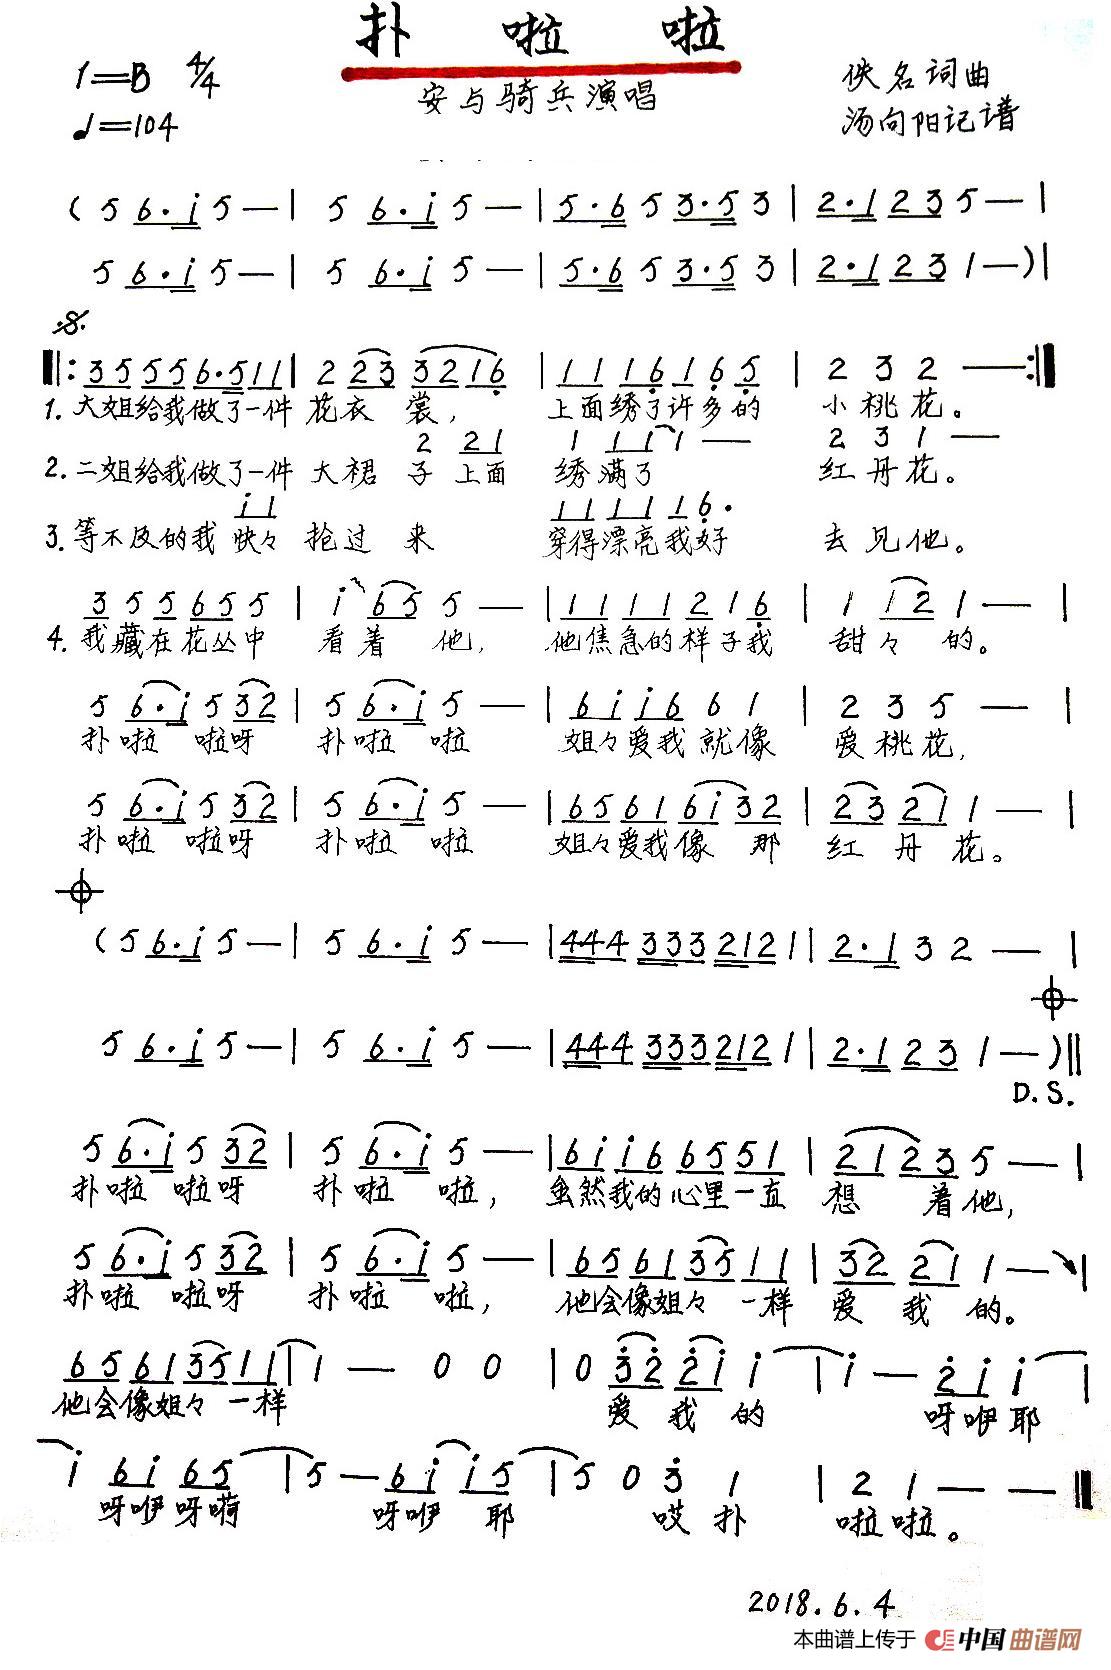 扑 啦 啦
1=B 4/4
安与骑兵演唱
佚名词曲
♩=104
汤向阳记谱
( 5 6·i 5 — | 5 6·i 5 — | 5·6 5 3·5 3 | 2·1 2 3 5 — |
5 6·i 5 — | 5 6·i 5 — | 5·6 5 3·5 3 | 2·1 2 3 1 — ) |
𝄋
‖: 3 5 5 5 6·5 1 1 | 2 2 3 3 2 1 6̣ | 1 1 1 6̣ 1 6̣·5̣ | 2 3 2 — :‖
1. 大姐给我做了一件 花衣 裳, 上面绣了许多的 小桃花。
2 2 1 1 1 1 1 1 — 2 3 1 —
2. 二姐给我做了一件 大裙 子 上面 绣满了 红丹花。
i 1 1 1 1 1 1 6̣·
3. 等不及的我 快々 抢过 来 穿得漂亮我好 去见他。
3 5 5 6 5 5 | i 6 5 5 — | 1 1 1 1 2 1 6̣ | 1 1 2 1 — |
4. 我藏在花丛中 看着 他, 他焦急的样子我 甜々 的。
5 6·i 5 3 2 | 5 6·i 5 — | 6 i i 6 6 1 | 2 3 5 — |
扑啦 啦呀 扑啦 啦 姐々爱我就像 爱桃花,
5 6·i 5 3 2 | 5 6·i 5 — | 6 5 6 1 6 i 3 2 | 2 3 2 1 1 — |
扑啦 啦呀 扑啦 啦 姐々爱我像 那 红 丹 花。
𝄌
( 5 6·i 5 — | 5 6·i 5 — | 4 4 4 3 3 3 2 1 2 1 | 2·1 3 2 — |
𝄌
5 6·i 5 — | 5 6·i 5 — | 4 4 4 3 3 3 2 1 2 1 | 2·1 2 3 1 — ) ‖
D.S.
5 6·i 5 3 2 | 5 6·i 5 — | 6 i i 6 6 5 5 1 | 2 1 2 3 5 — |
扑啦 啦呀 扑啦 啦, 虽然我的心里一直 想 着他,
5 6·i 5 3 2 | 5 6·i 5 — | 6 5 6 1 3 5 1 1 | 3 2 2 1 1 — |
扑啦 啦呀 扑啦 啦, 他会像姐々 一样 爱 我 的。
6 5 6 1 3 5 1 1 | 1 — 0 0 | 0 3̇ 2̇ 2̇ i i | i — 2̇ i i |
他会像姐々 一样 爱 我 的 呀咿耶
i 6 i 6 5 | 5 — 6 i i 5 | 5 0 3̇ 1 | 2 1 — — ‖
呀咿呀嗬 呀咿 耶 哎 扑 啦啦。
2018.6.4
本曲谱上传于 中国曲谱网